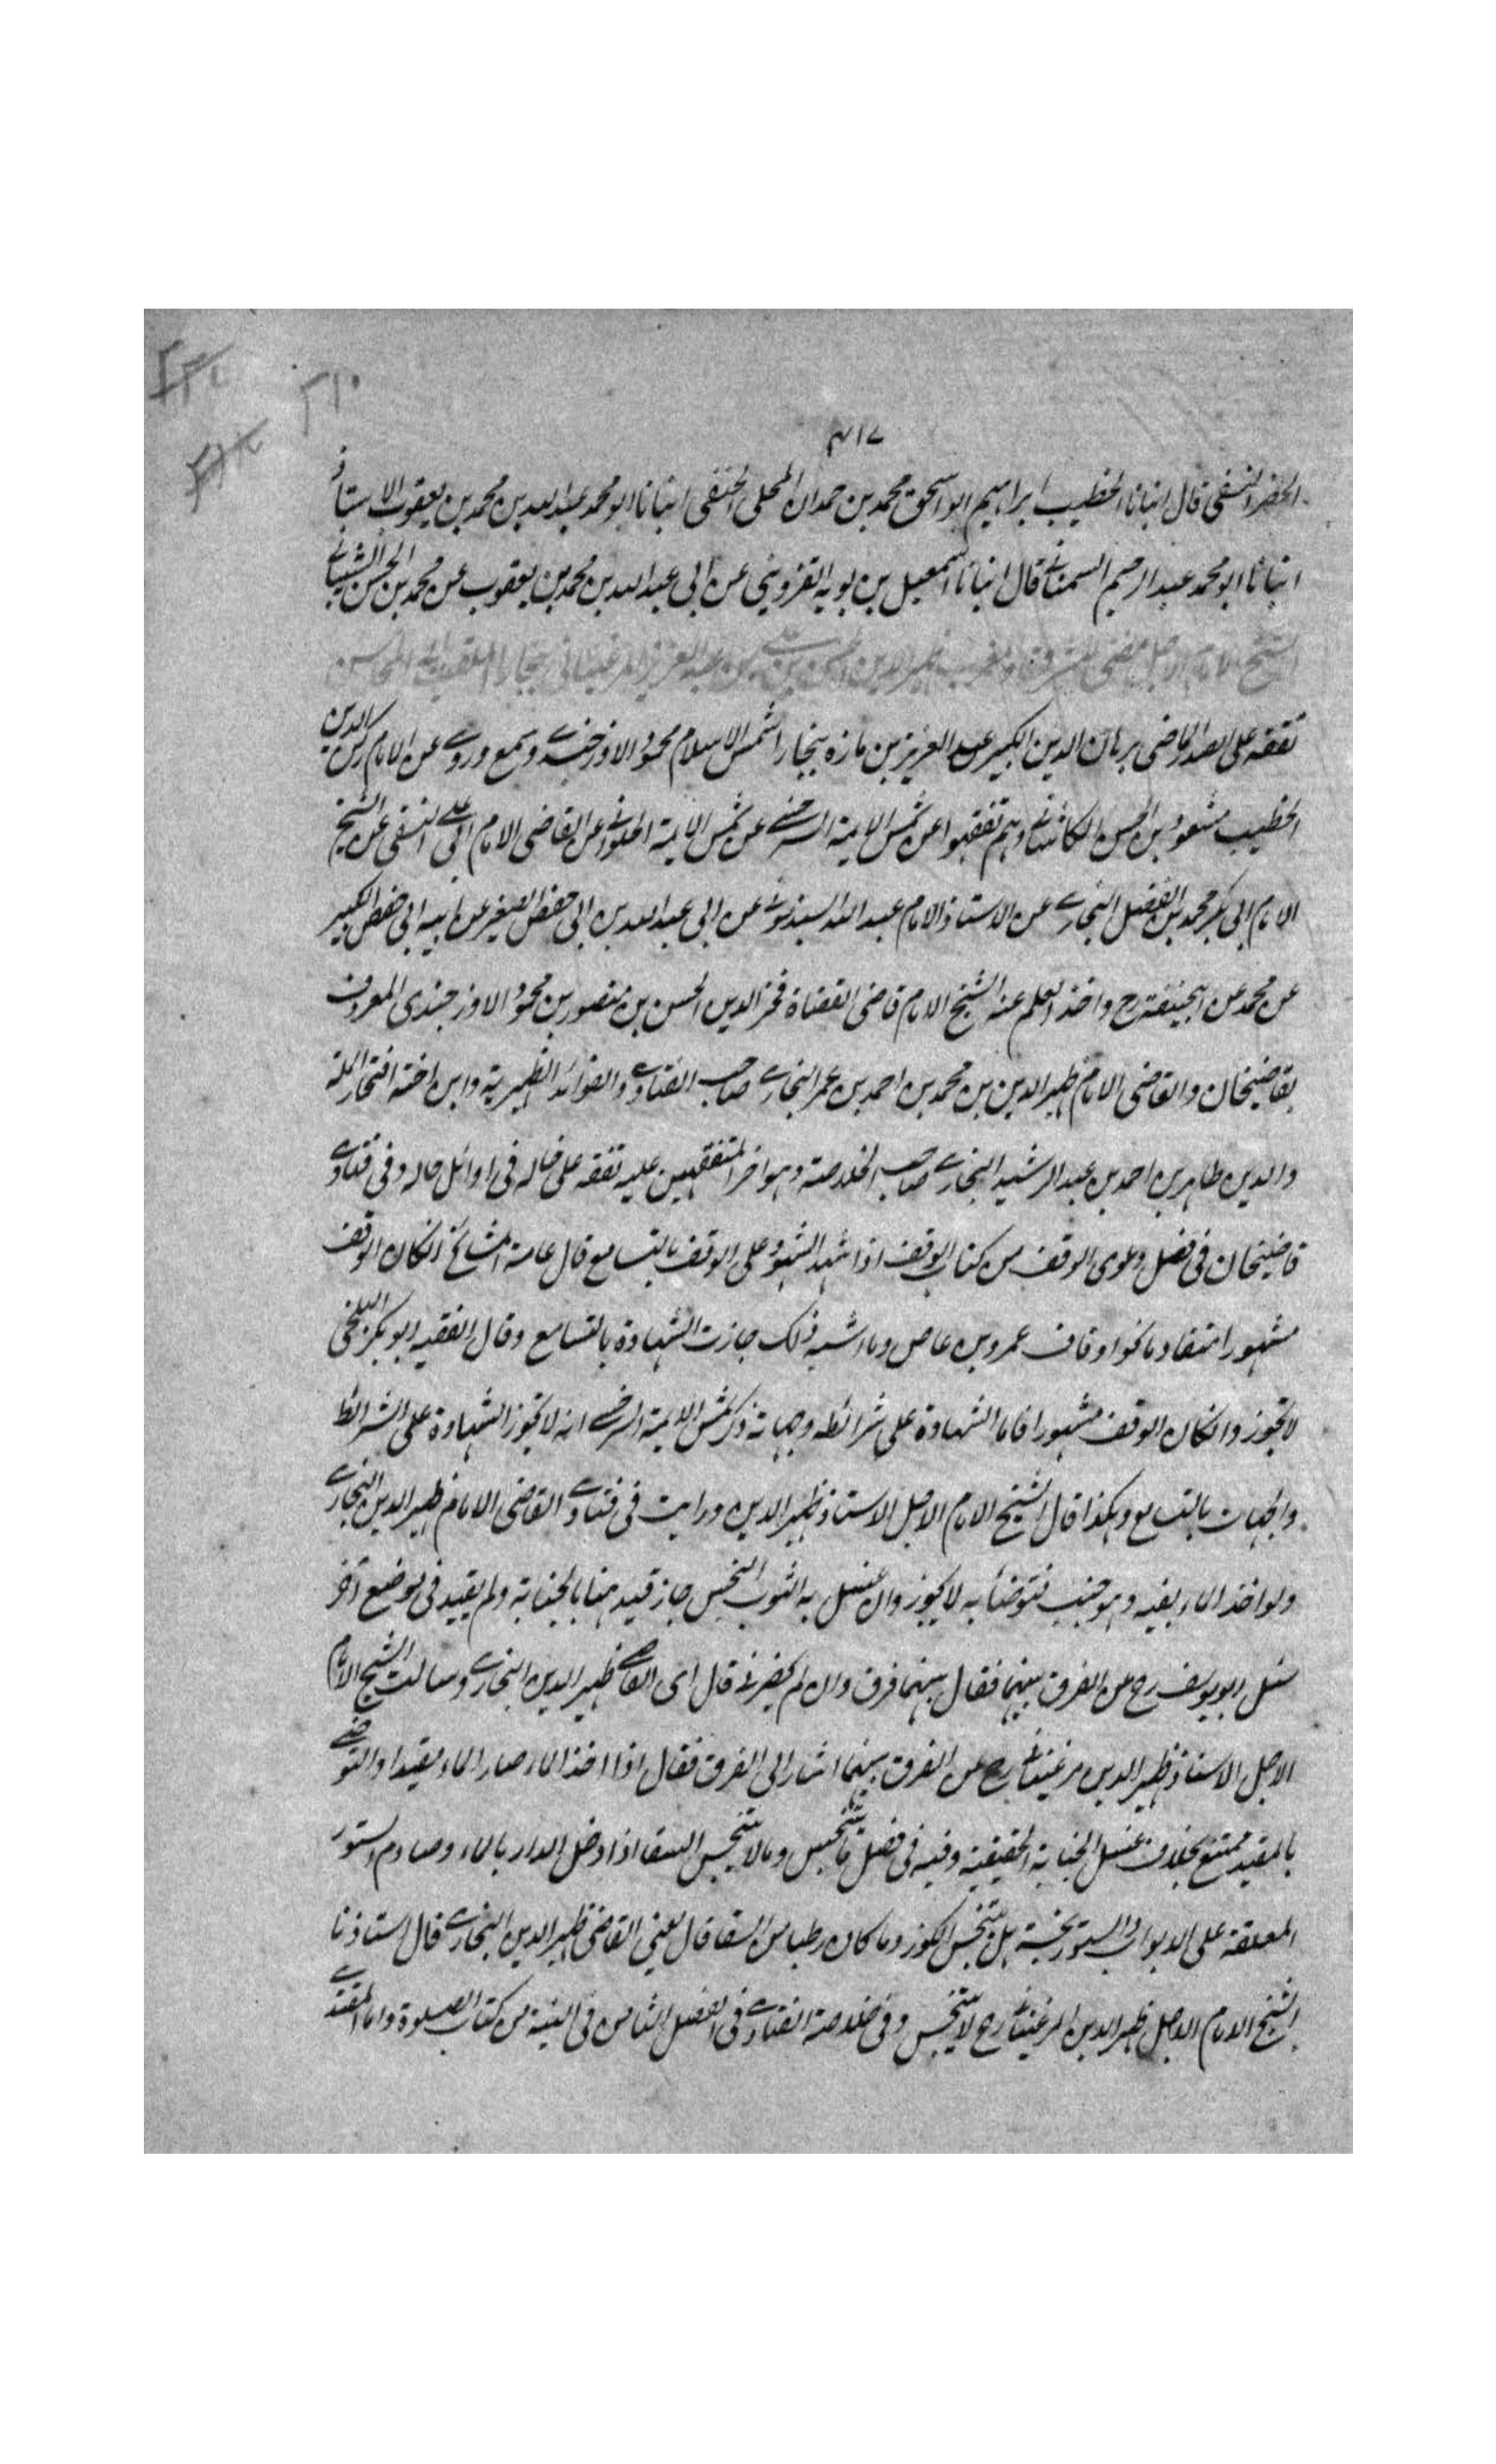 ٢١٠
٤١٧
الخضر النسفى قال انبانا الخطيب ابراهيم ابو اسحق محمد بن حمدان المحلى الحنفى انبانا ابو محمد عبد الله بن محمد بن يعقوب الاستاذ
انبانا ابو محمد عبد الرحيم السمنانى قال انبانا اسمعيل بن بويه القزوينى عن ابى عبد الله بن محمد بن يعقوب عن محمد بن الحسن الشيبانى
الشيخ الامام الاجل مفتى المشرق والمغرب ظهير الدين الحسن بن على بن عبد العزيز المرغينانى بخارا الملقب بابى المحاسن
تفقه على الصدر الماضى برهان الدين الكبير عبد العزيز بن مازه بخارا شمس الاسلام محمود الاوزجندى وسمع وروى عن الامام ركن الدين
الخطيب مسعود بن الحسن الكاشانى وهم تفقهوا عن شمس الايمة السرخسى عن شمس الايمة الحلوانى عن القاضى الامام ابى على النسفى عن الشيخ
الامام ابى بكر محمد بن الفضل البخارى عن الاستاذ الامام عبد الله السبذمونى عن ابى عبد الله بن ابى حفص الصغير عن ابيه ابى حفص الكبير
عن محمد عن ابيحنيفة رح واخذ العلم عنه الشيخ الامام قاضى القضاة فخر الدين الحسن بن منصور بن محمود الاوزجندى المعروف
بقاضيخان والقاضى الامام ظهير الدين بن محمد بن احمد بن عمر البخارى صاحب الفتاوى والفوائد الظهيرية وابن اخته افتخار الملة
والدين طاهر بن احمد بن عبد الرشيد البخارى صاحب الخلاصة وهو اخر المتفقهين عليه تفقه على خاله فى اوائل حاله وفى فتاوى
قاضيخان فى فصل دعوى الوقف من كتاب الوقف اذا شهد الشهود على الوقف بالتسامع قال عامة المشائخ ان كان الوقف
مشهورا متقادما نحو اوقاف عمرو بن عاص وما اشبه ذلك جازت الشهادة بالتسامع وقال الفقيه ابو بكر البلخى
لا تجوز وان كان الوقف مشهورا فاما الشهادة على شرائطه وجهاته ذكر شمس الايمة السرخسى انه لا تجوز الشهادة على الشرائط
والجهات بالتسامع وهكذا قال الشيخ الامام الاجل الاستاذ ظهير الدين ورايت فى فتاوى القاضى الامام ظهير الدين البخارى
ولو اخذ الماء بفيه وهو جنب فتوضأ به لا يجوز وان غسل به الثوب النجس جاز قيد هنا بالجنابة ولم يقيد فى موضع آخر
سئل ابو يوسف رح عن الفرق بينهما فقال بينهما فرق وان لم يحضرنى قال اى القاضى ظهير الدين البخارى وسالت الشيخ الامام
الاجل الاستاذ ظهير الدين مرغينانى رح عن الفرق بينهما اشار الى الفرق فقال اذا اخذ الماء صار الماء مقيدا والتوضى
بالمقيد ممتنع بخلاف غسل الجنابة الحقيقية وفيه فى فصل ما يتنجس وما لا يتنجس السقا اذا دخل الدار بالماء وصادم الستور
المعلقة على الابواب والستور نجسة هل يتنجس الكوز وما كان رطبا من السقا قال يعنى القاضى ظهير الدين البخارى قال استاذنا
الشيخ الامام الاجل ظهير الدين المرغينانى رح لا يتنجس وفى خلاصة الفتاوى فى الفصل الثامن فى النية من كتاب الصلوة واما المقتدى